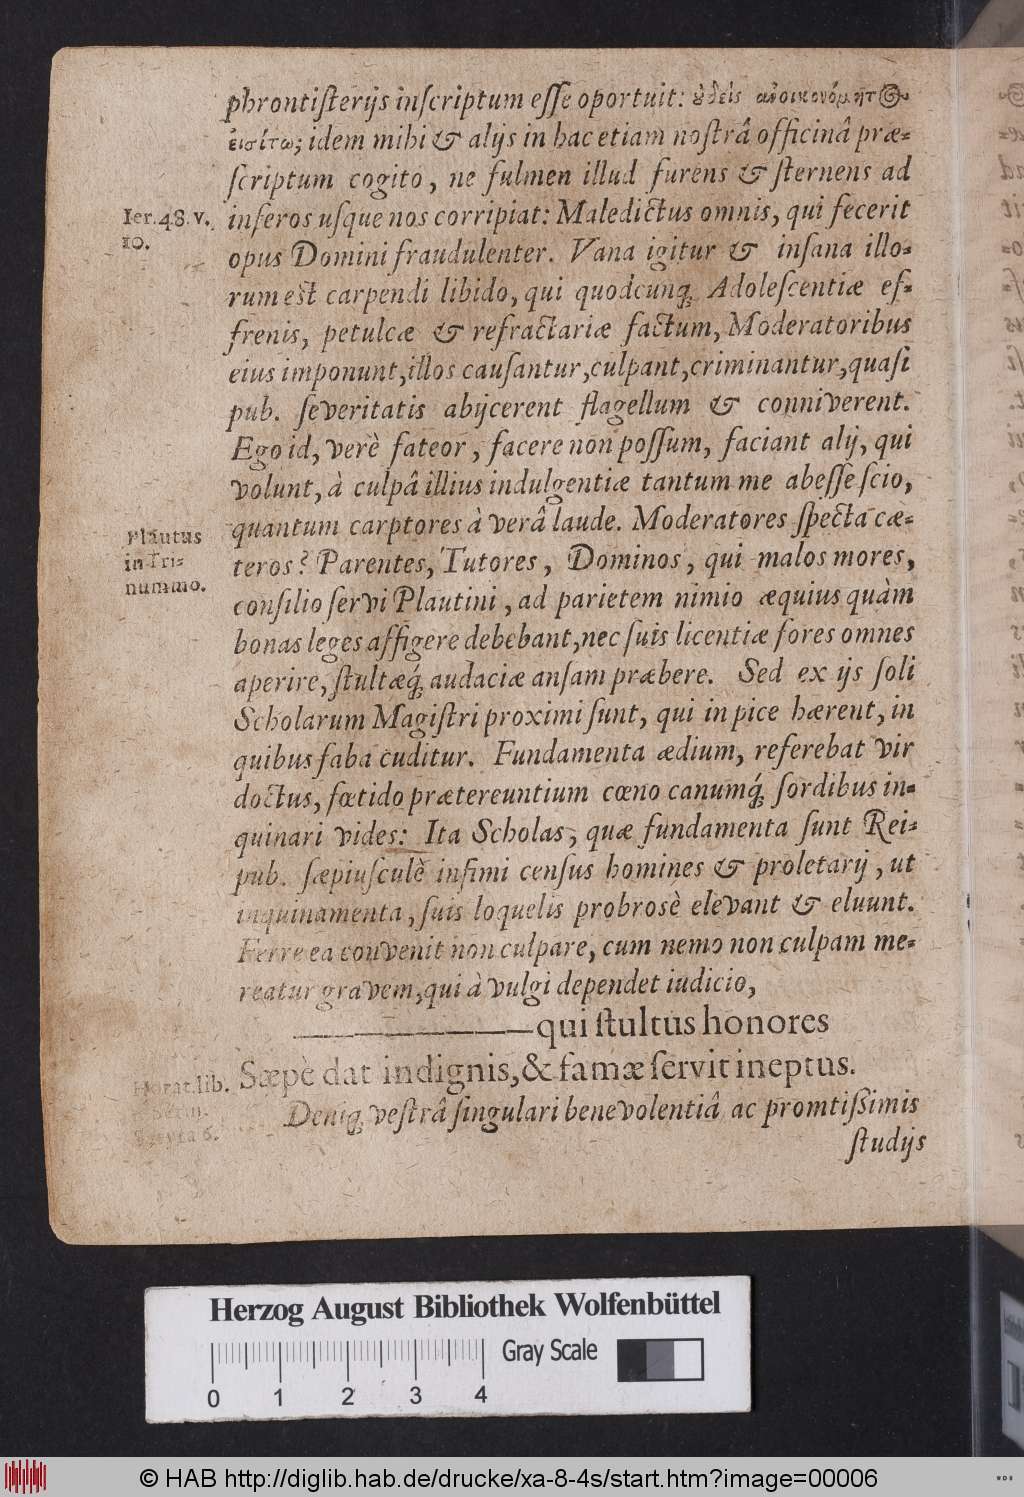 phrontiſterijs inſcriptum eſſe oportuit: ȣ̓δεὶς ἀνοικονόμητ
εἰσίτω; idem mihi & alijs in hac etiam noſtrâ officinâ præ-
ſcriptum cogito, ne fulmen illud furens & ſternens ad
Ier. 48. v. inferos uſque nos corripiat: Maledictus omnis, qui fecerit
10. opus Domini fraudulenter. Vana igitur & inſana illo-
rum est carpendi libido, qui quodcunq; Adoleſcentiæ ef-
frenis, petulcæ & refractariæ factum, Moderatoribus
eius imponunt, illos cauſantur, culpant, criminantur, quaſi
pub. ſeveritatis abijcerent flagellum & conniverent.
Ego id, verè fateor, facere non poſſum, faciant alij, qui
volunt, à culpâ illius indulgentiæ tantum me abeſſe ſcio,
quantum carptores à verâ laude. Moderatores ſpecta cæ-
Plautus
in Tri-
nummo.
teros? Parentes, Tutores, Dominos, qui malos mores,
conſilio ſervi Plautini, ad parietem nimio æquius quàm
bonas leges affigere debebant, nec ſuis licentiæ fores omnes
aperire, ſtultæq́; audaciæ anſam præbere. Sed ex ijs ſoli
Scholarum Magiſtri proximi ſunt, qui in pice hærent, in
quibus faba cuditur. Fundamenta ædium, referebat vir
doctus, fœtido prætereuntium cœno canumq́; ſordibus in-
quinari vides: Ita Scholas, quæ fundamenta ſunt Rei-
pub. ſæpiuſculè infimi cenſus homines & proletarij, ut
inquinamenta, ſuis loquelis probrosè elevant & eluunt.
Ferre ea convenit non culpare, cum nemo non culpam me-
reatur gravem, qui à vulgi dependet iudicio,
qui ſtultus honores
Horat. lib. Sæpè dat indignis, & famæ ſervit ineptus.
Satyra 6.
Deniq; veſtrâ ſingulari benevolentiâ ac promtiſsimis
ſtudijs
Herzog August Bibliothek Wolfenbüttel
Gray Scale
0 1 2 3 4
© HAB http://diglib.hab.de/drucke/xa-8-4s/start.htm?image=00006